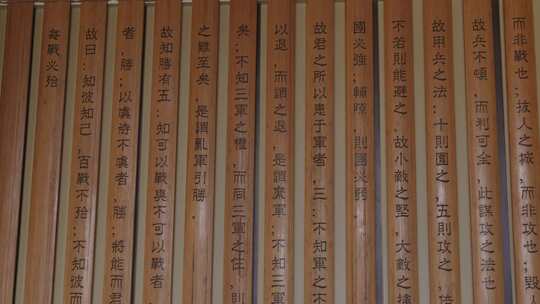 而非戰也；拔人之城，而非攻也；毀
故兵不頓，而利可全，此謀攻之法也
故用兵之法：十則圍之，五則攻之，倍
不若則能避之。故小敵之堅，大敵之擒
國必強；輔隙，則國必弱。
故君之所以患于軍者，三：不知軍之不
以退，而謂之退，是謂縻軍；不知三
矣；不知三軍之權，而同三軍之任，則
之難至矣，是謂亂軍引勝。
故知勝有五：知可以戰與不可以戰者，
者，勝；以虞待不虞者，勝；將能而君
故曰：知彼知己，百戰不殆；不知彼而
每戰必殆